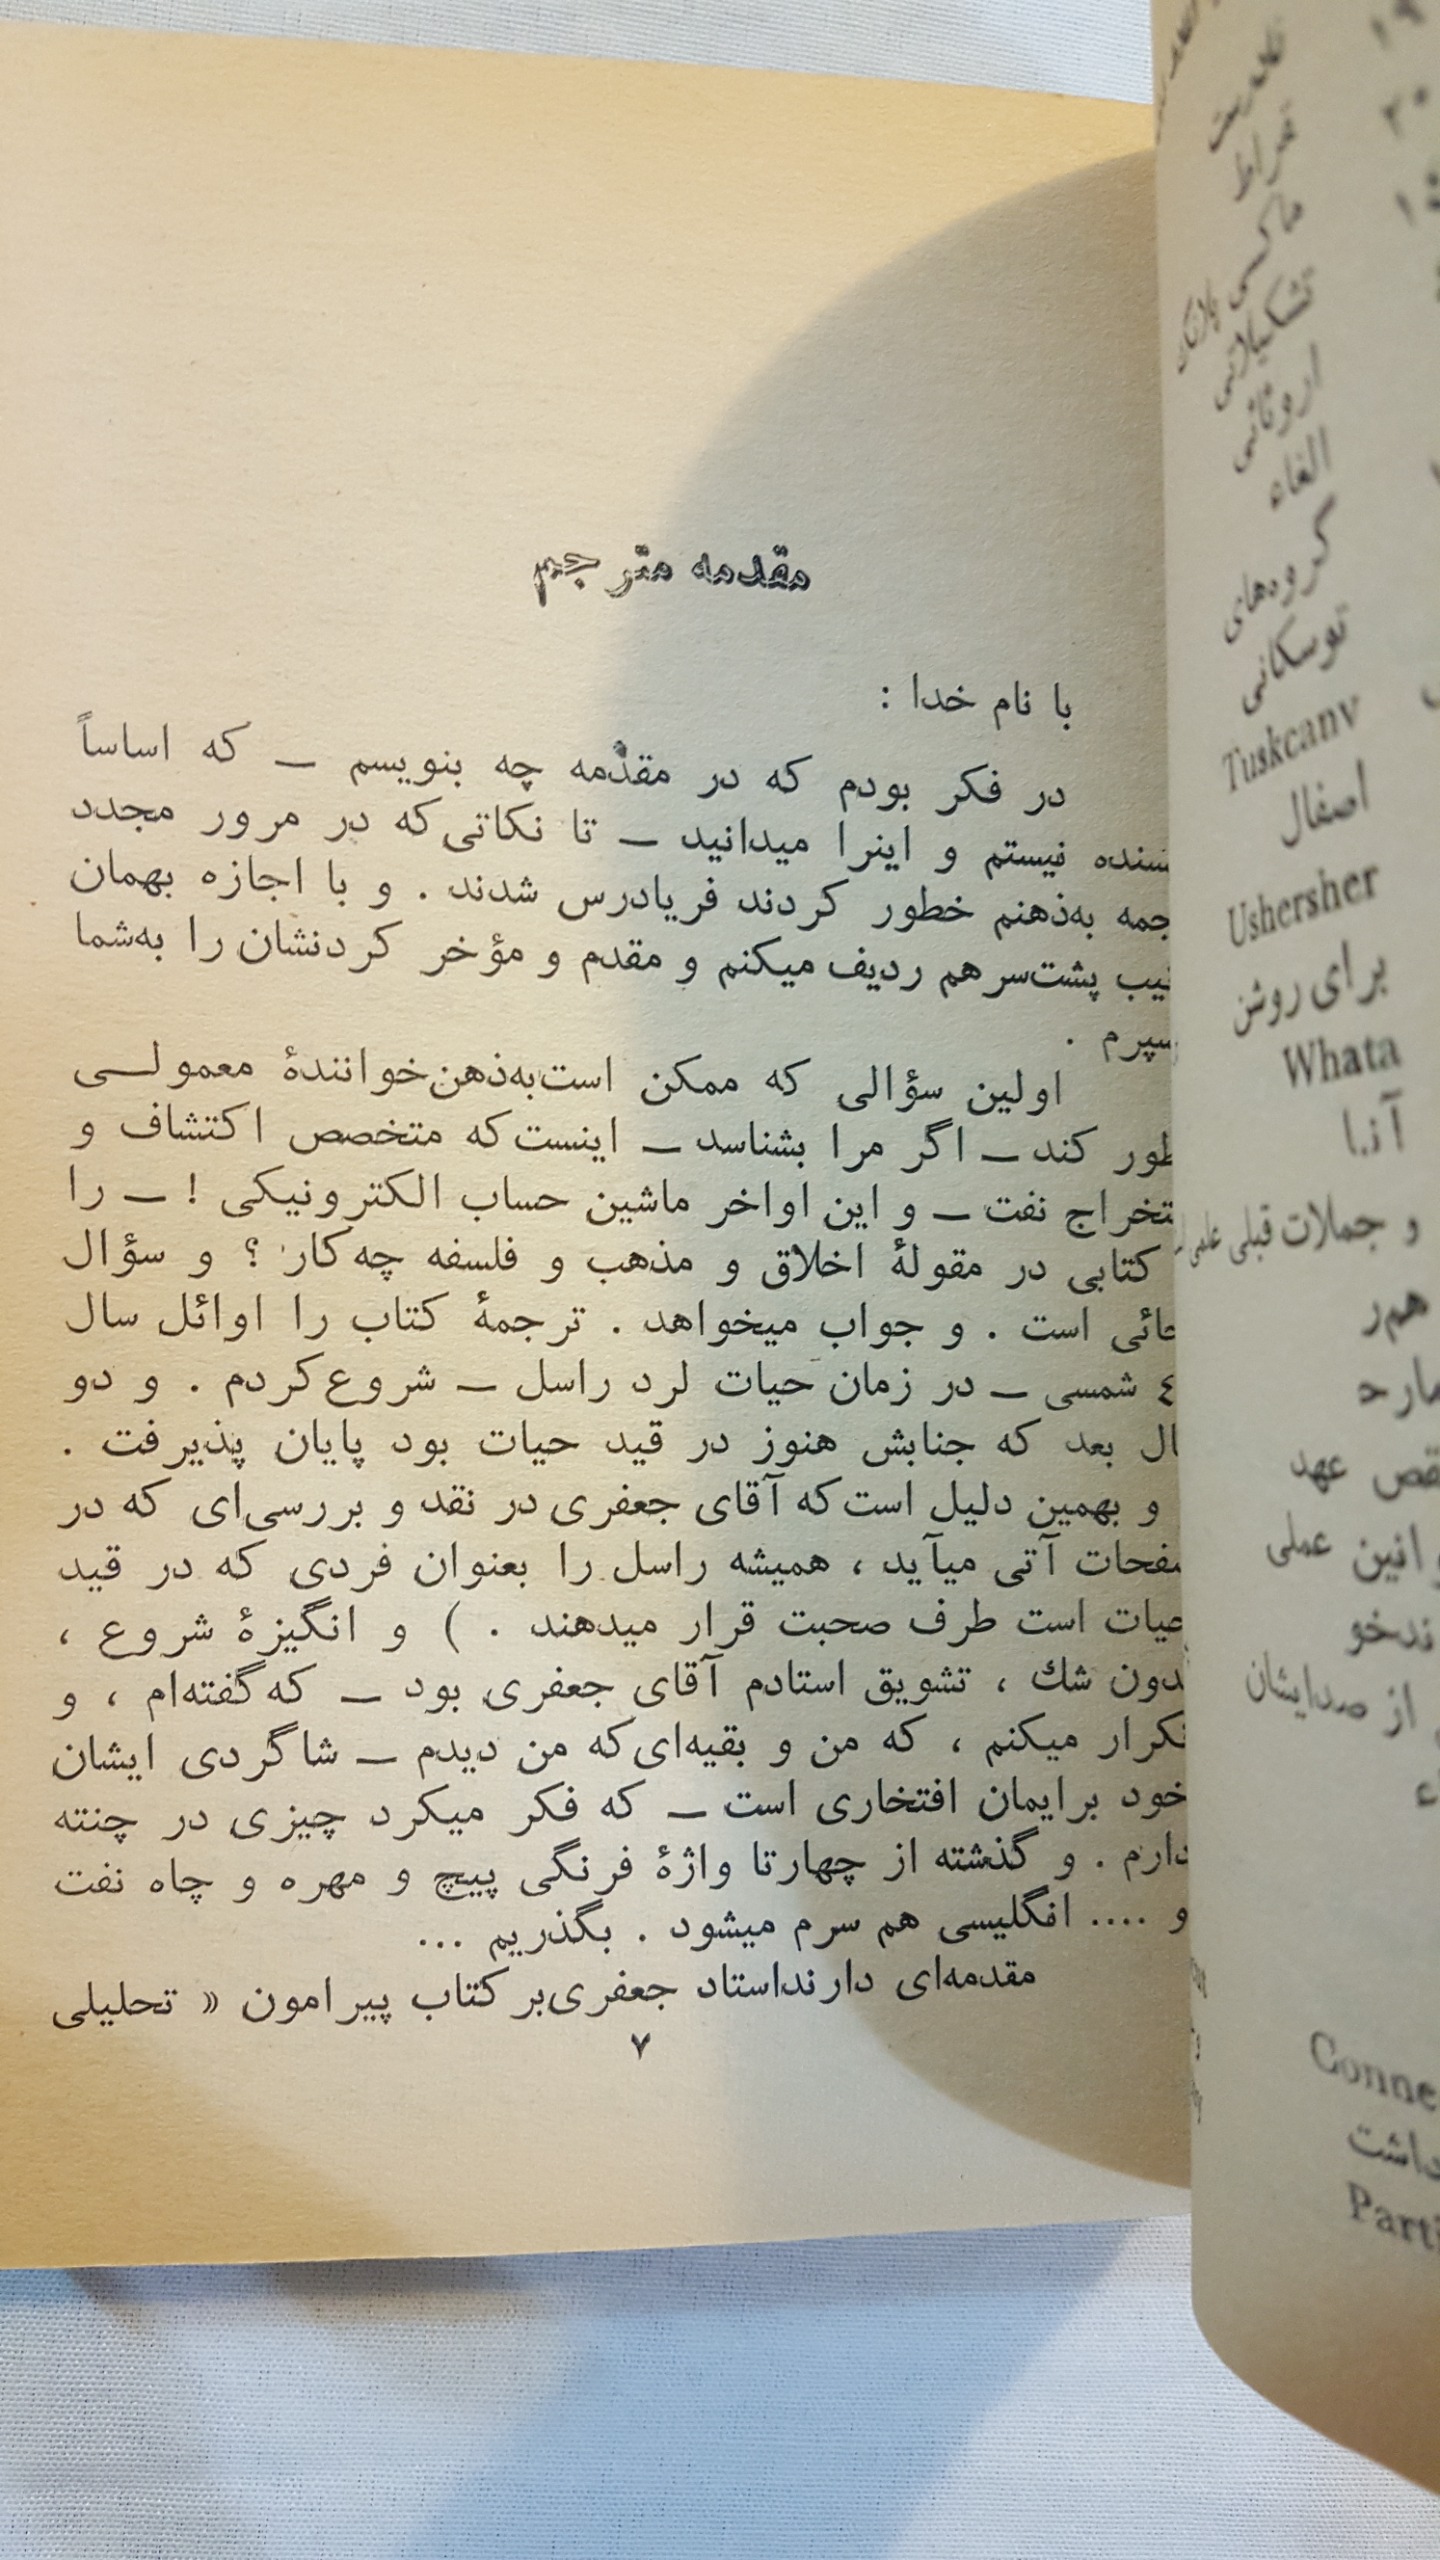 مقدمه مترجم
با نام خدا :
در فکر بودم که در مقدّمه چه بنویسم — که اساساً
نیستم و اینرا میدانید — تا نکاتی‌که در مرور مجدد
به‌ذهنم خطور کردند فریادرس شدند . و با اجازه بهمان
پشت‌سرهم ردیف میکنم و مقدم و مؤخر کردنشان را به‌شما
اولین سؤالی که ممکن است‌به‌ذهن‌خوانندهٔ معمولی
کند — اگر مرا بشناسد — اینست‌که متخصص اکتشاف و
نفت — و این اواخر ماشین حساب الکترونیکی ! — را
کتابی در مقولهٔ اخلاق و مذهب و فلسفه چه‌کار ؟ و سؤال
است . و جواب میخواهد . ترجمهٔ کتاب را اوائل سال
شمسی — در زمان حیات لرد راسل — شروع‌کردم . و دو
بعد که جنابش هنوز در قید حیات بود پایان پذیرفت .
و بهمین دلیل است‌که آقای جعفری در نقد و بررسی‌ای که در
صفحات آتی میآید ، همیشه راسل را بعنوان فردی که در قید
حیات است طرف صحبت قرار میدهند . ) و انگیزهٔ شروع ،
بدون شك ، تشویق استادم آقای جعفری بود — که‌گفته‌ام ، و
تکرار میکنم ، که من و بقیه‌ای‌که من دیدم — شاگردی ایشان
خود برایمان افتخاری است — که فکر میکرد چیزی در چنته
دارم . و گذشته از چهارتا واژهٔ فرنگی پیچ و مهره و چاه نفت
و .... انگلیسی هم سرم میشود . بگذریم ...
مقدمه‌ای دارنداستاد جعفری‌بر کتاب پیرامون « تحلیلی
۷
۲۰
قیراط
ماکسی پلانک
تشکیلاتی
الغاء
گروه‌های
توسکانی
Tuskcanv
اصفال
Ushersher
برای روشن
Whata
آنا
و جملات قبلی علمی
عهد
عملی
از صدایشان